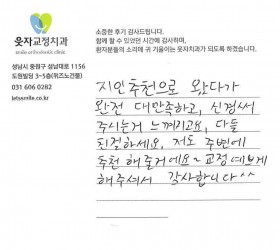 웃자교정치과
smile orthodontic clinic
성남시 중원구 성남대로 1156
도원빌딩 3~5층(위즈노건물)
031 606 0282
letssmile.co.kr
소중한 후기 감사드립니다.
함께 할 수 있었던 시간에 감사하며,
환자분들의 소리에 귀 기울이는 웃자치과가 되도록 하겠습니다.
지인추천으로 왔다가
완전 대만족하고, 신경써
주시는거 느껴지고요, 다들
친절하세요, 저도 주변에
추천 해줄거에요~ 교정 예쁘게
해주셔서 감사합니다^^